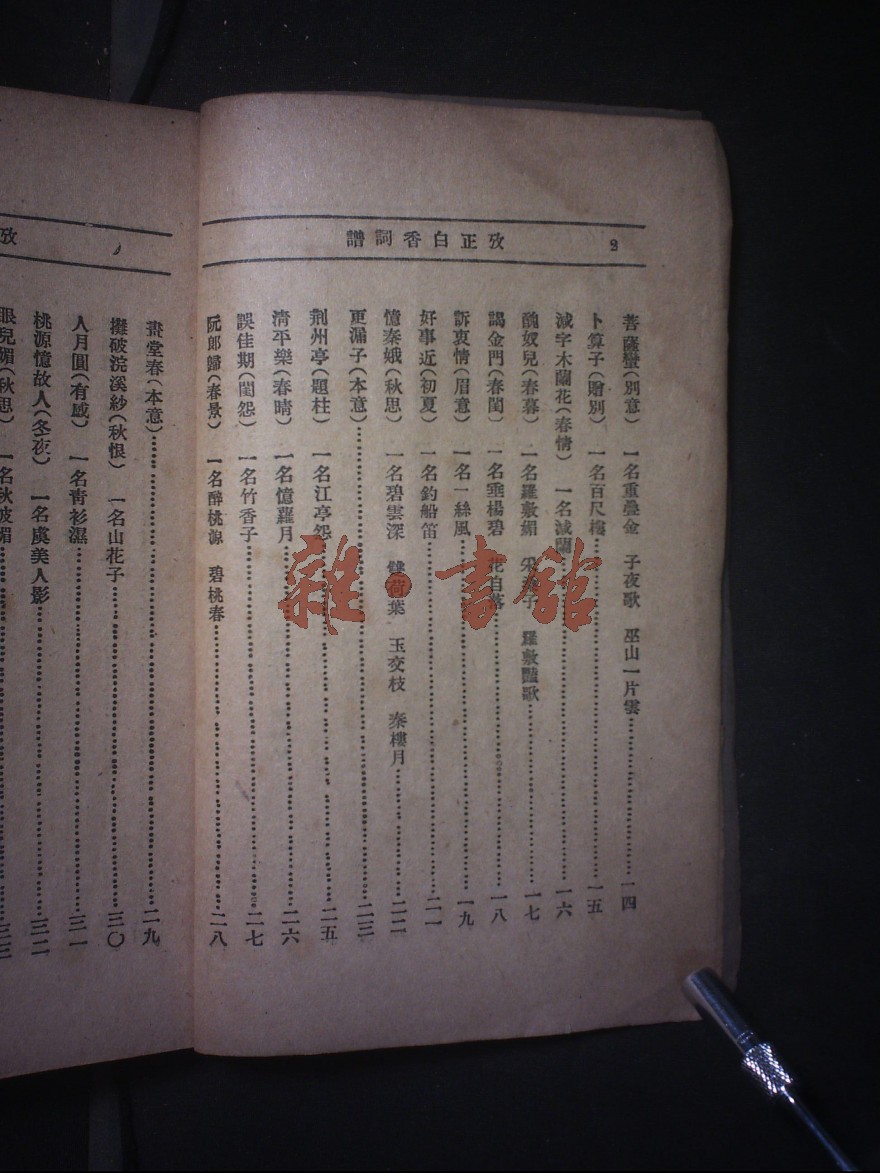 攷正白香詞譜
菩薩蠻（別意）　一名重疊金　子夜歌　巫山一片雲……一四
卜算子（贈別）　一名百尺樓……一五
減字木蘭花（春情）　一名減蘭……一六
醜奴兒（春暮）　一名羅敷媚　采桑子　羅敷豔歌……一七
謁金門（春閨）　一名垂楊碧　花自落……一八
訴衷情（眉意）　一名一絲風……一九
好事近（初夏）　一名釣船笛……二一
憶秦娥（秋思）　一名碧雲深　雙荷葉　玉交枝　秦樓月……二二
更漏子（本意）……二三
荆州亭（題柱）　一名江亭怨……二五
清平樂（春晴）　一名憶蘿月……二六
誤佳期（閨怨）　一名竹香子……二七
阮郎歸（春景）　一名醉桃源　碧桃春……二八
攷
畫堂春（本意）……二九
攤破浣溪紗（秋恨）　一名山花子……三〇
人月圓（有感）　一名靑衫濕……三一
桃源憶故人（冬夜）　一名虞美人影……三二
眼兒媚（秋思）　一名秋波媚……三三
雜·書館